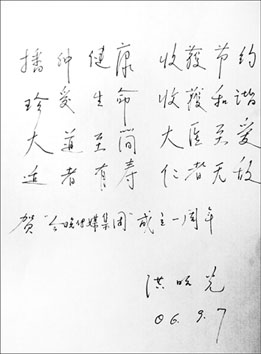 播种健康 收获节约
珍爱生命 收获和谐
大道至简 大医至爱
达者有寿 仁者无敌
贺"合晚传媒集团"成立一周年
洪昭光
06.9.7